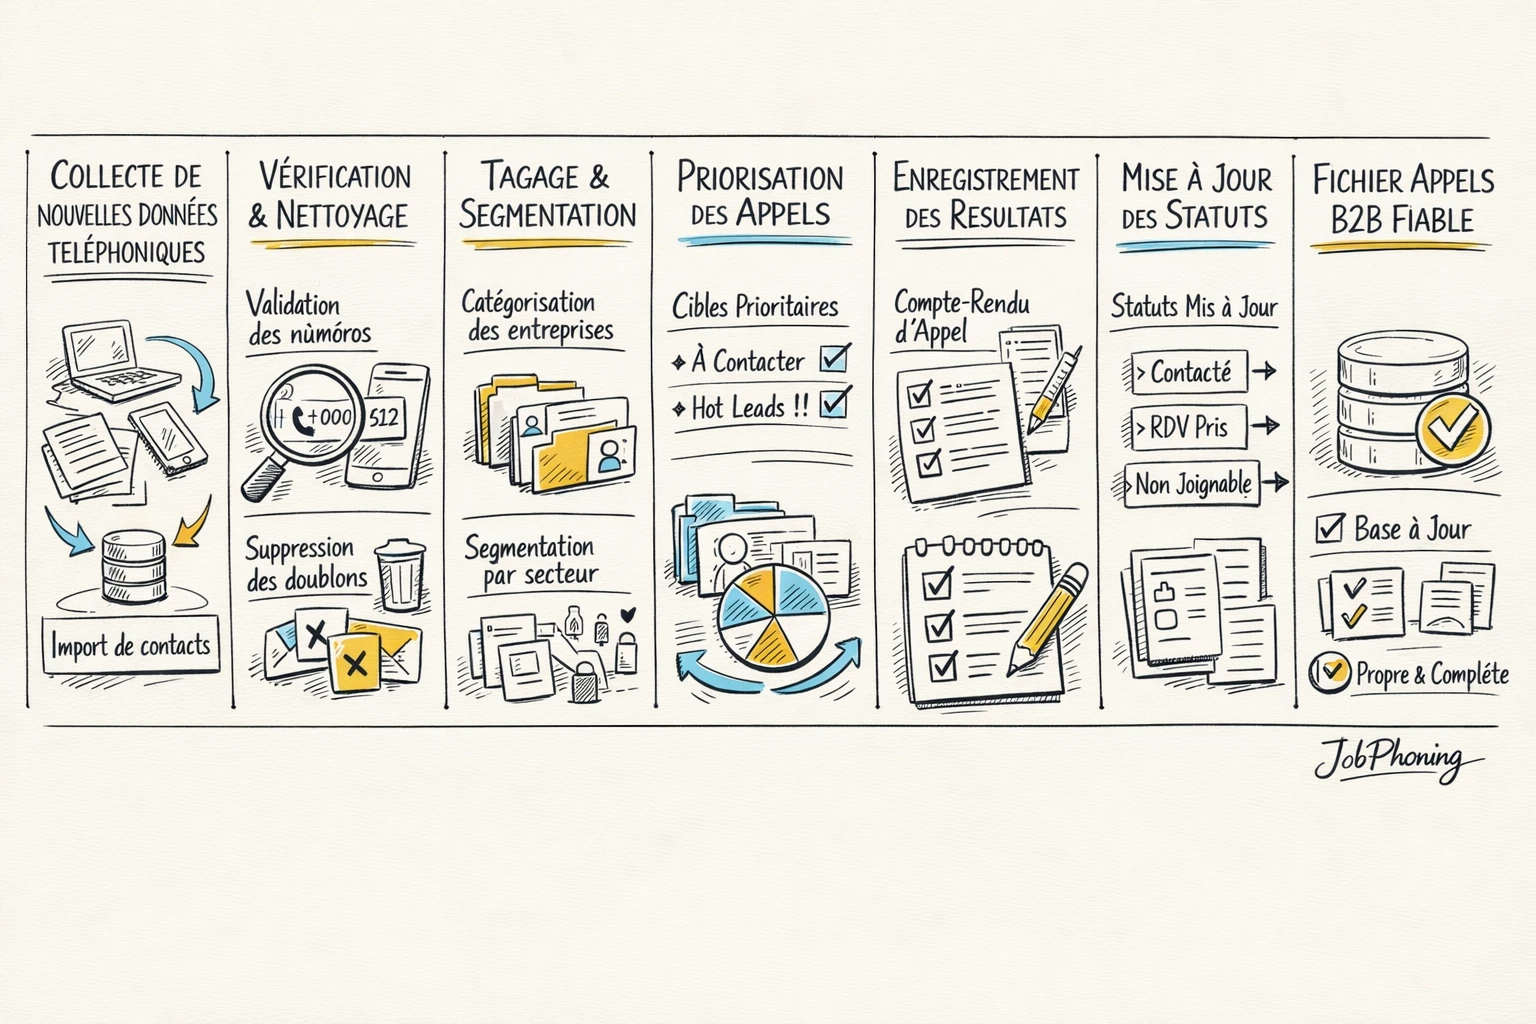 COLLECTE DE
NOUVELLES DONNÉES
TELÉPHONIQUES
Import de contacts
VÉRIFICATION
& NETTOYAGE
Validation
des nùmóros
+000
512
Suppression
des doublons
TAGAGE &
SEGMENTATION
Catégorisation
des entreprises
Segmentation
par secteur
PRIORISATION
DES APPELS
Cibles Prioritaires
À Contacter
Hot Leads !!
ENREGISTREMENT
DES RESULTATS
Compte-Rendu
d'Appel
MISE À JOUR
DES STATUTS
Statuts Mis à Jour
> Contacté
> RDV Pris
> Non Joignable
FICHIER APPELS
B2B FIABLE
Base à Jour
Propre & Compléte
JobPhoning